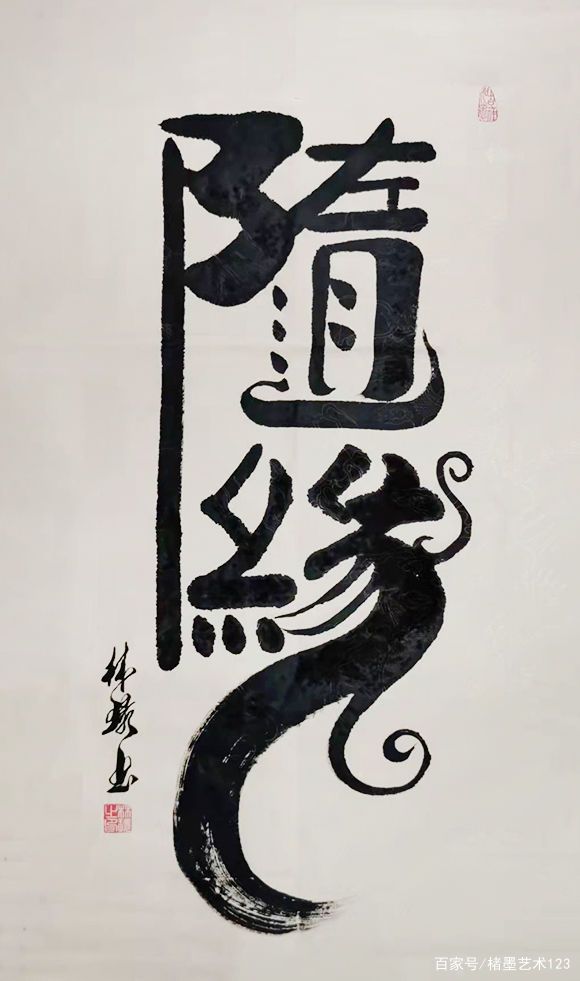 隨緣
林莽书
百家号/楮墨艺术123